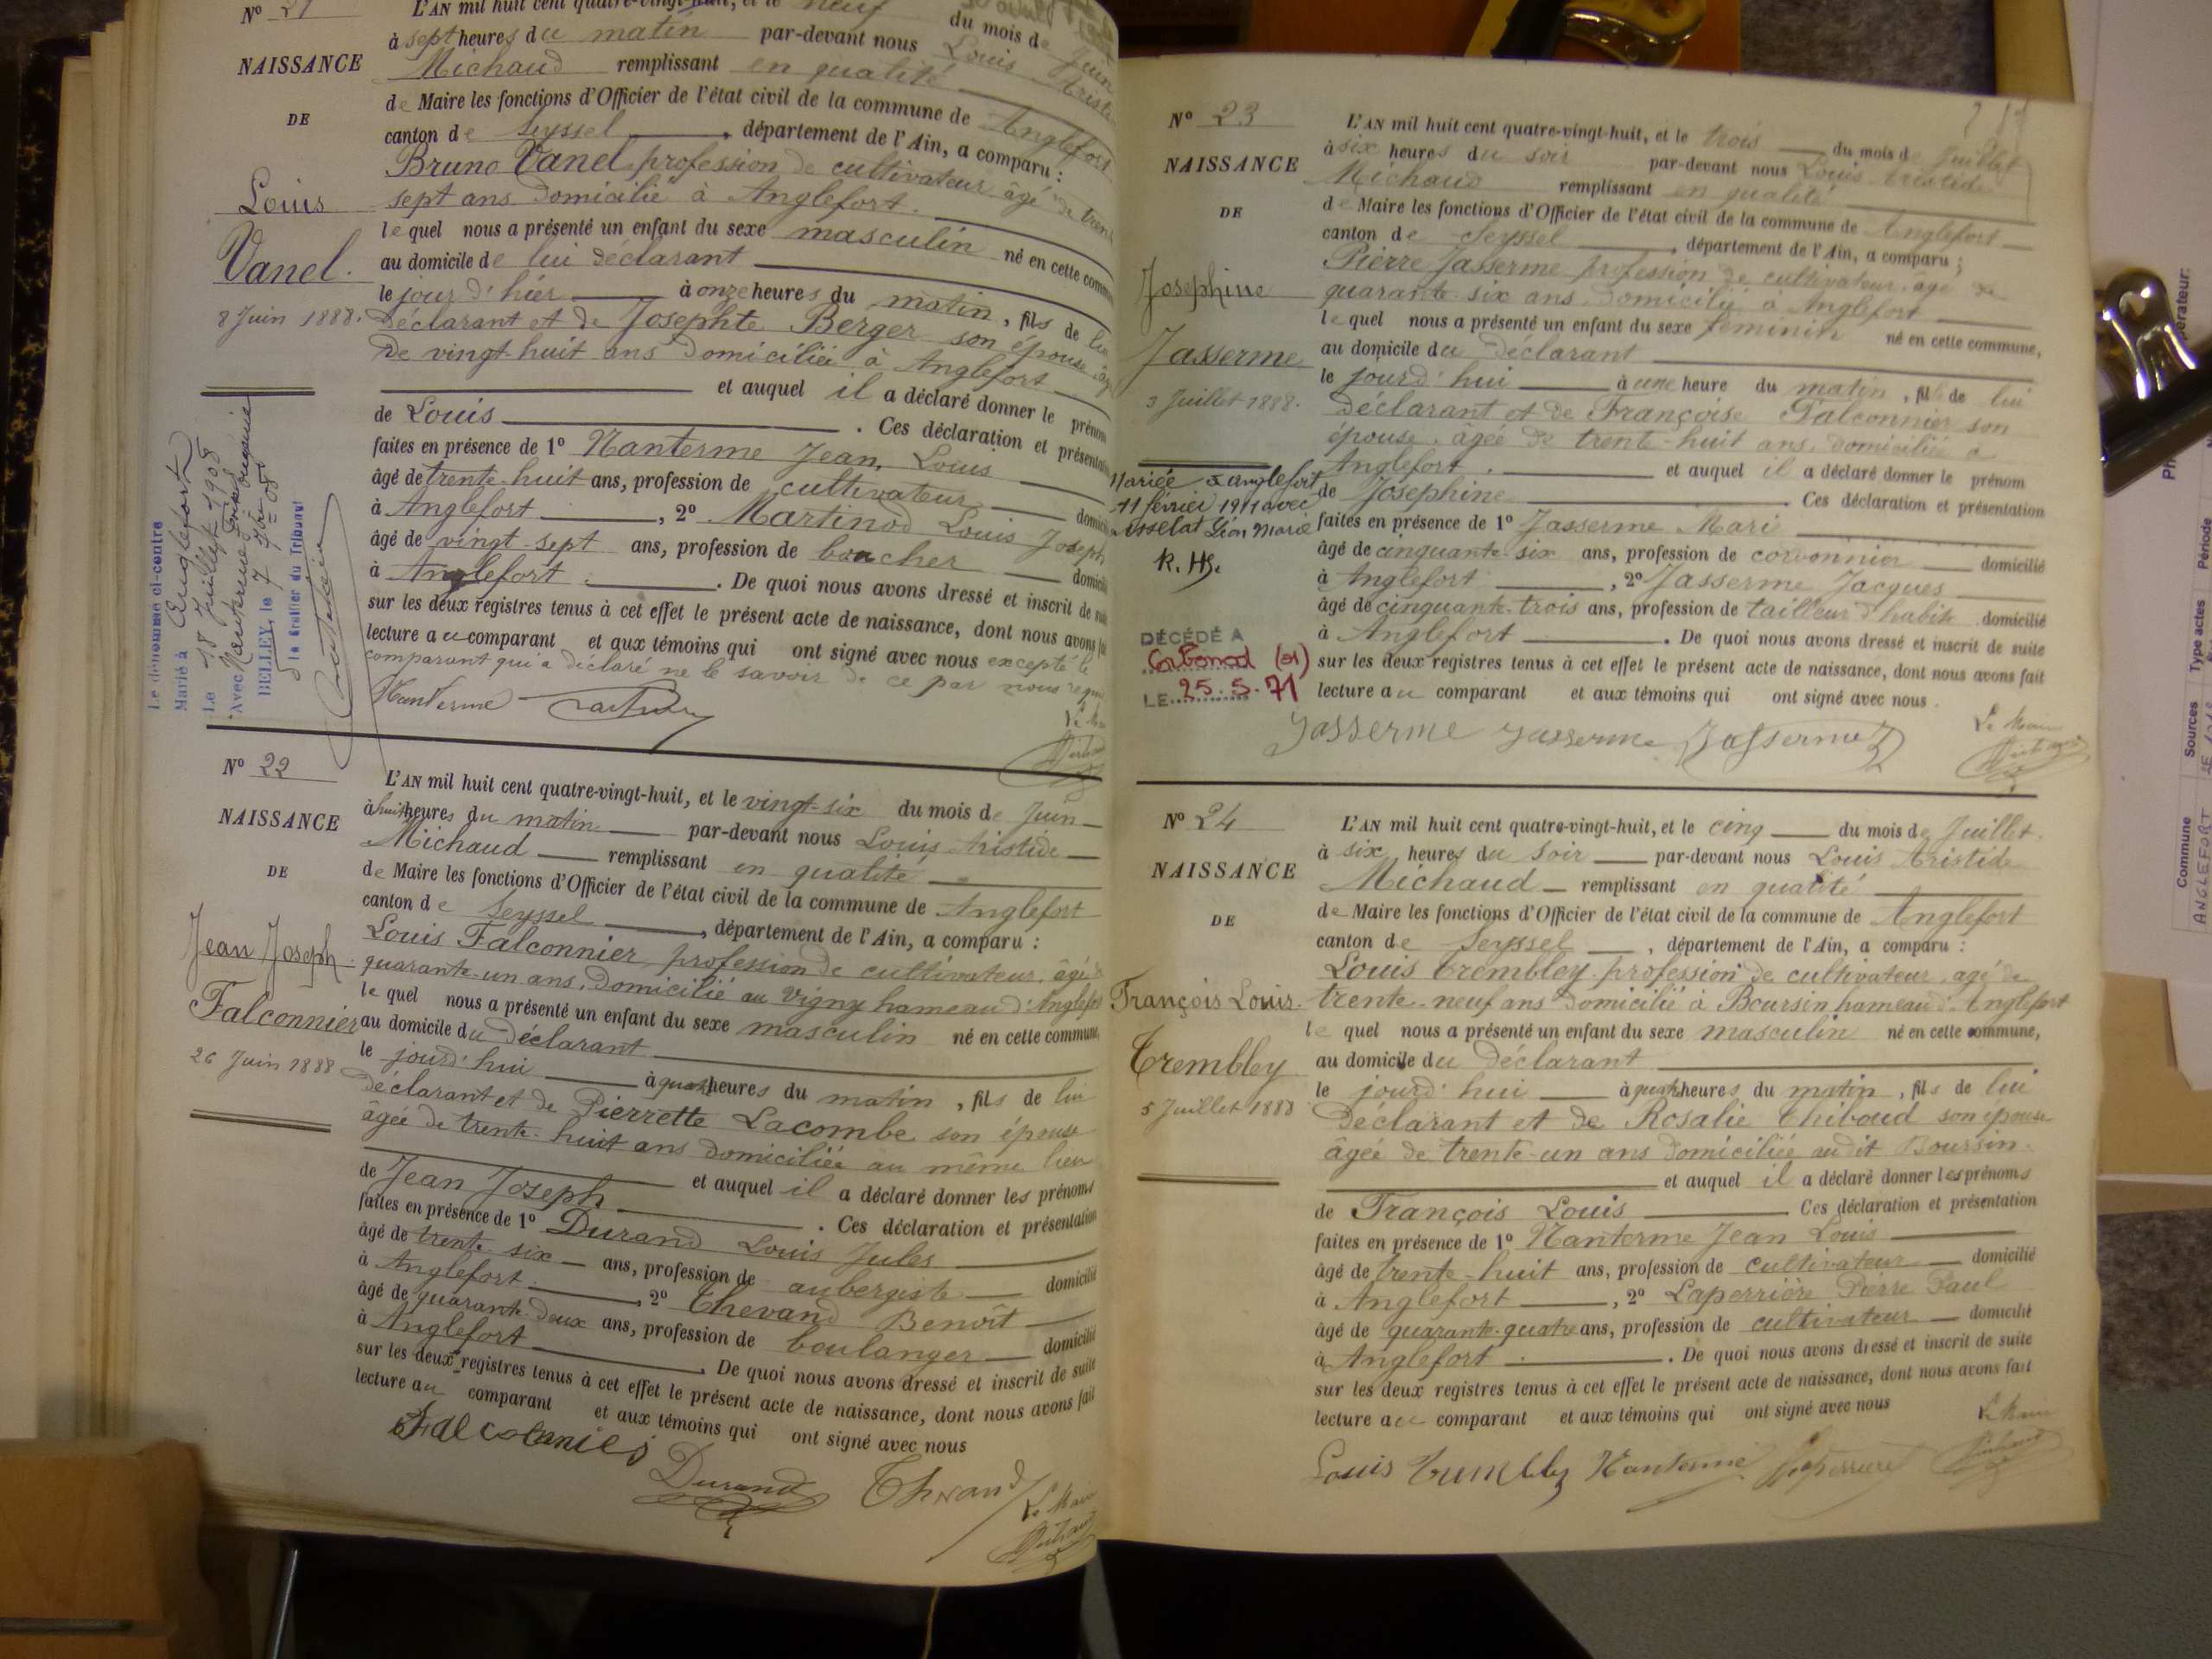 N° 21
NAISSANCE
DE
Louis
Vanel.
8 Juin 1888.
L'AN mil huit cent quatre-vingt-huit, et le neuf du mois de Juin
à sept heures du matin par-devant nous Louis Aristide
Michaud remplissant en qualité
de Maire les fonctions d'Officier de l'état civil de la commune de Anglefort
canton de Seyssel, département de l'Ain, a comparu :
Bruno Vanel profession de cultivateur âgé de trente
sept ans domicilié à Anglefort.
lequel nous a présenté un enfant du sexe masculin né en cette commune
au domicile de lui déclarant
le jour d'hier à onze heures du matin, fils de lui
déclarant et de Josephte Berger son épouse âgée
de vingt-huit ans domiciliée à Anglefort
et auquel il a déclaré donner le prénom
de Louis. Ces déclaration et présentation
faites en présence de 1° Nanterme Jean, Louis
âgé de trente-huit ans, profession de cultivateur domicilié
à Anglefort, 2° Martinod Louis Joseph
âgé de vingt-sept ans, profession de boucher domicilié
à Anglefort. De quoi nous avons dressé et inscrit de suite
sur les deux registres tenus à cet effet le présent acte de naissance, dont nous avons fait
lecture au comparant et aux témoins qui ont signé avec nous excepté le
comparant qui a déclaré ne le savoir de ce par nous requis
Nanterme
Le Maire
Le dénommé ci-contre
Marié à Anglefort
Le 18 Juillet 1908
Avec Nanterme
BELLEY, le 7
le Greffier du Tribunal
N° 22
NAISSANCE
DE
Jean Joseph
Falconnier
26 Juin 1888
L'AN mil huit cent quatre-vingt-huit, et le vingt-six du mois de Juin
à huit heures du matin par-devant nous Louis Aristide
Michaud remplissant en qualité
de Maire les fonctions d'Officier de l'état civil de la commune de Anglefort
canton de Seyssel, département de l'Ain, a comparu :
Louis Falconnier profession de cultivateur, âgé de
quarante-un ans, domicilié au Vigny hameau d'Anglefort
lequel nous a présenté un enfant du sexe masculin né en cette commune,
au domicile du déclarant
le jourd'hui à quatre heures du matin, fils de lui
déclarant et de Pierrette Lacombe son épouse
âgée de trente-huit ans domiciliée au même lieu
et auquel il a déclaré donner les prénoms
de Jean Joseph. Ces déclaration et présentation
faites en présence de 1° Durand Louis Jules
âgé de trente six ans, profession de aubergiste domicilié
à Anglefort, 2° Thevand Benoît
âgé de quarante-deux ans, profession de boulanger domicilié
à Anglefort. De quoi nous avons dressé et inscrit de suite
sur les deux registres tenus à cet effet le présent acte de naissance, dont nous avons fait
lecture au comparant et aux témoins qui ont signé avec nous
Durand
Le Maire
N° 23
NAISSANCE
DE
Josephine
Jasserme
3 Juillet 1888.
Mariée à Anglefort
11 février 1911 avec
Léon Marie
DÉCÉDÉ A
Culoz
LE 25.5.71
L'AN mil huit cent quatre-vingt-huit, et le trois du mois de Juillet
à six heures du soir par-devant nous Louis Aristide
Michaud remplissant en qualité
de Maire les fonctions d'Officier de l'état civil de la commune de Anglefort
canton de Seyssel, département de l'Ain, a comparu ;
Pierre Jasserme profession de cultivateur, âgé de
quarante-six ans domicilié à Anglefort
lequel nous a présenté un enfant du sexe féminin né en cette commune,
au domicile du déclarant
le jourd'hui à une heure du matin, fille de lui
déclarant et de Françoise Falconnier son
épouse, âgée de trente-huit ans, domiciliée à
Anglefort. et auquel il a déclaré donner le prénom
de Josephine. Ces déclaration et présentation
faites en présence de 1° Jasserme Marie
âgé de cinquante-six ans, profession de cordonnier domicilié
à Anglefort, 2° Jasserme Jacques
âgé de cinquante-trois ans, profession de tailleur d'habits domicilié
à Anglefort. De quoi nous avons dressé et inscrit de suite
sur les deux registres tenus à cet effet le présent acte de naissance, dont nous avons fait
lecture au comparant et aux témoins qui ont signé avec nous.
Jasserme Jasserme Jasserme
Le Maire
N° 24
NAISSANCE
DE
François Louis.
Trembley
5 Juillet 1888
L'AN mil huit cent quatre-vingt-huit, et le cinq du mois de Juillet.
à six heures du soir par-devant nous Louis Aristide
Michaud remplissant en qualité
de Maire les fonctions d'Officier de l'état civil de la commune de Anglefort
canton de Seyssel, département de l'Ain, a comparu :
Louis Trembley profession de cultivateur, âgé de
trente-neuf ans domicilié à Boursin hameau d'Anglefort
lequel nous a présenté un enfant du sexe masculin né en cette commune,
au domicile du déclarant
le jourd'hui à quatre heures du matin, fils de lui
déclarant et de Rosalie Thiboud son épouse
âgée de trente-un ans domiciliée audit Boursin.
et auquel il a déclaré donner les prénoms
de François Louis Ces déclaration et présentation
faites en présence de 1° Nanterme Jean Louis
âgé de trente-huit ans, profession de cultivateur domicilié
à Anglefort, 2° Laperrière Pierre Paul
âgé de quarante-quatre ans, profession de cultivateur domicilié
à Anglefort. De quoi nous avons dressé et inscrit de suite
sur les deux registres tenus à cet effet le présent acte de naissance, dont nous avons fait
lecture au comparant et aux témoins qui ont signé avec nous
Louis Trembley Nanterme Laperrière
Le Maire
Commune Sources Type actes Période
ANGLEFORT